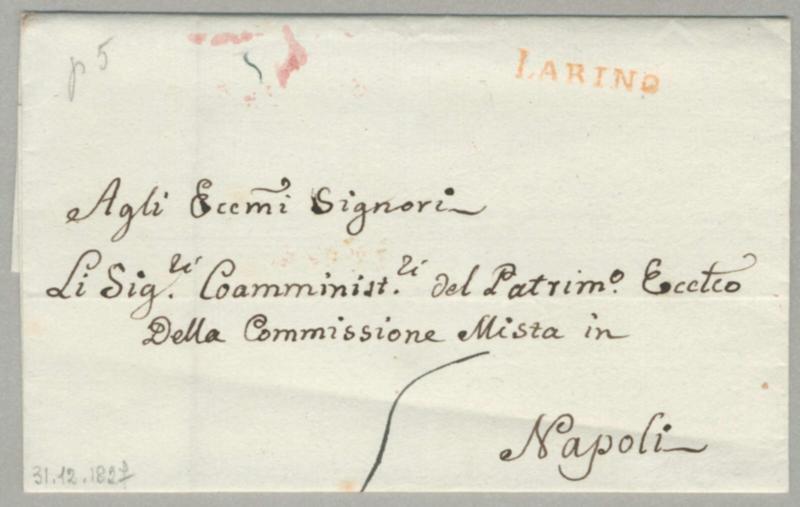 p 5
LARINO
Agli Eccmi Signori
Li Sig.ri Coamminist.ri del Patrimo. Eccltco
Della Commissione Mista in
Napoli